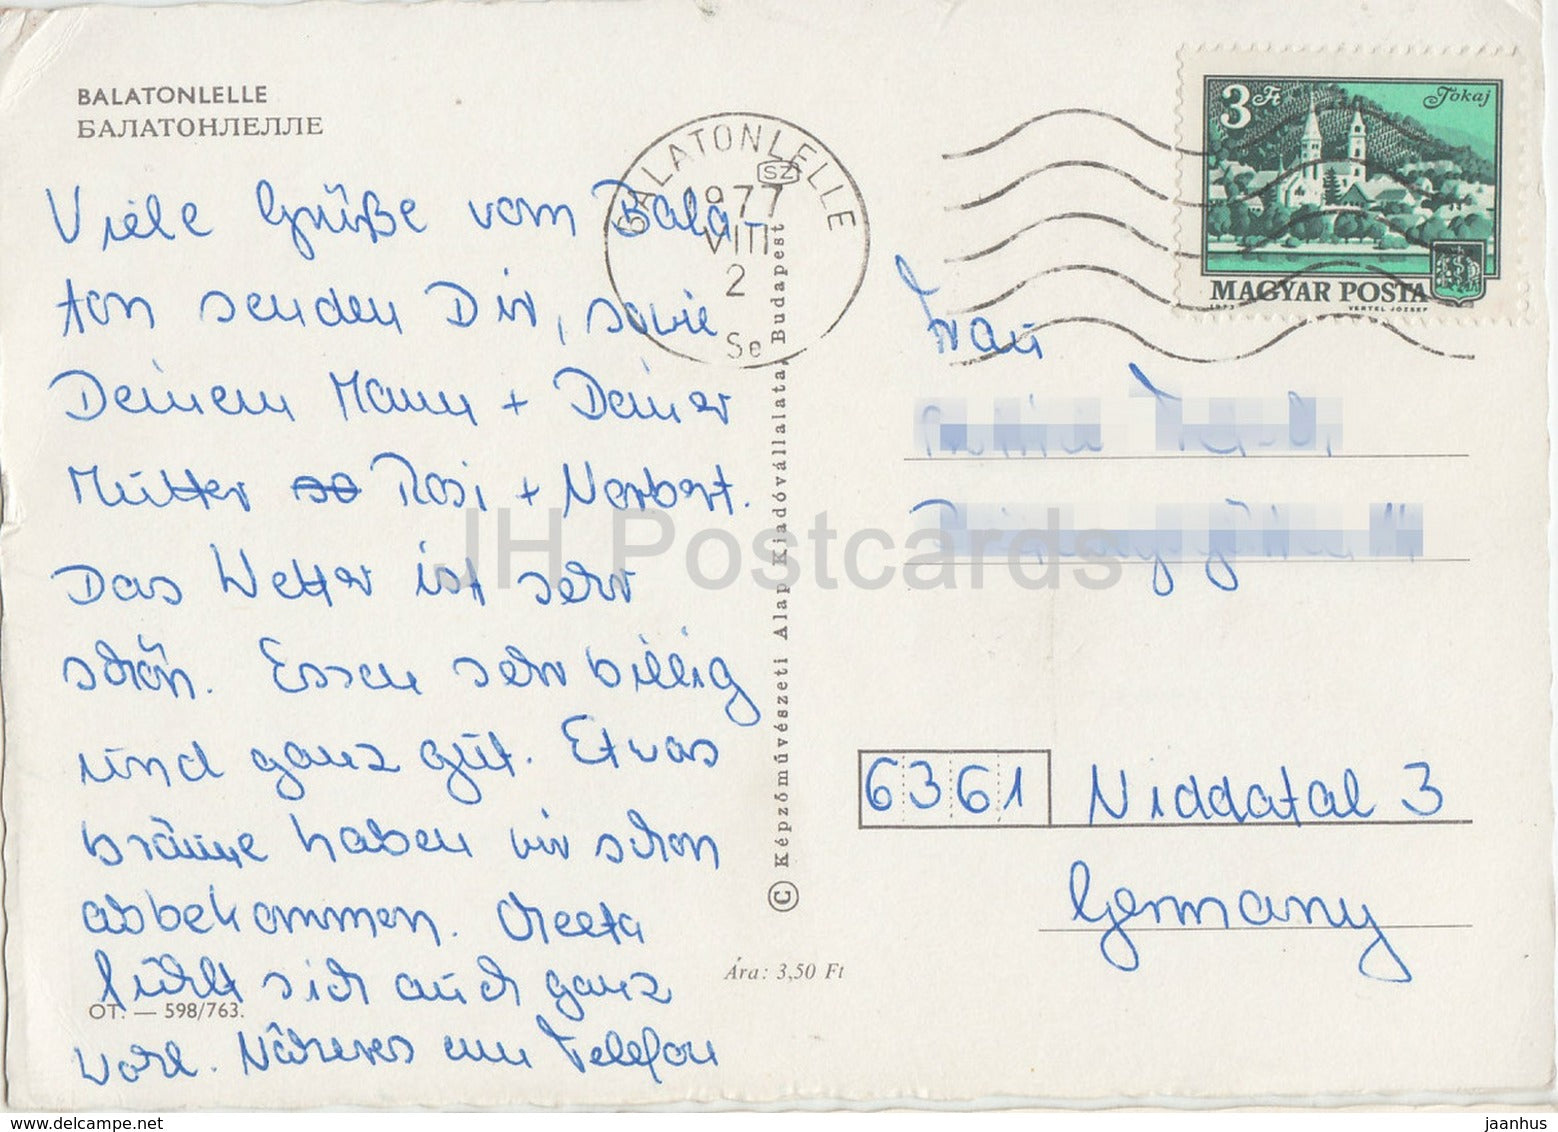 BALATONLELLE
БАЛАТОНЛЕЛЛЕ
Viele Grüße vom Bala-
ton senden Dir, sowie
Deinem Mann + Deiner
Mutter Rosi + Norbert.
Das Wetter ist sehr
schön. Essen sehr billig
und ganz gut. Etwas
bräune haben wir schon
abbekommen.
fühlt sich auch ganz
wohl. Näheres am Telefon
OT. — 598/763.
BALATONLELLE
SZ
1977
VIII
2
Se
© Képzőművészeti Alap Kiadóvállalata, Budapest
Ára: 3,50 Ft
3 Ft
Tokaj
MAGYAR POSTA
1973
VERTEL JÓZSEF
Frau
6361 Niddatal 3
Germany
JH Postcards
www.delcampe.net
jaanhus